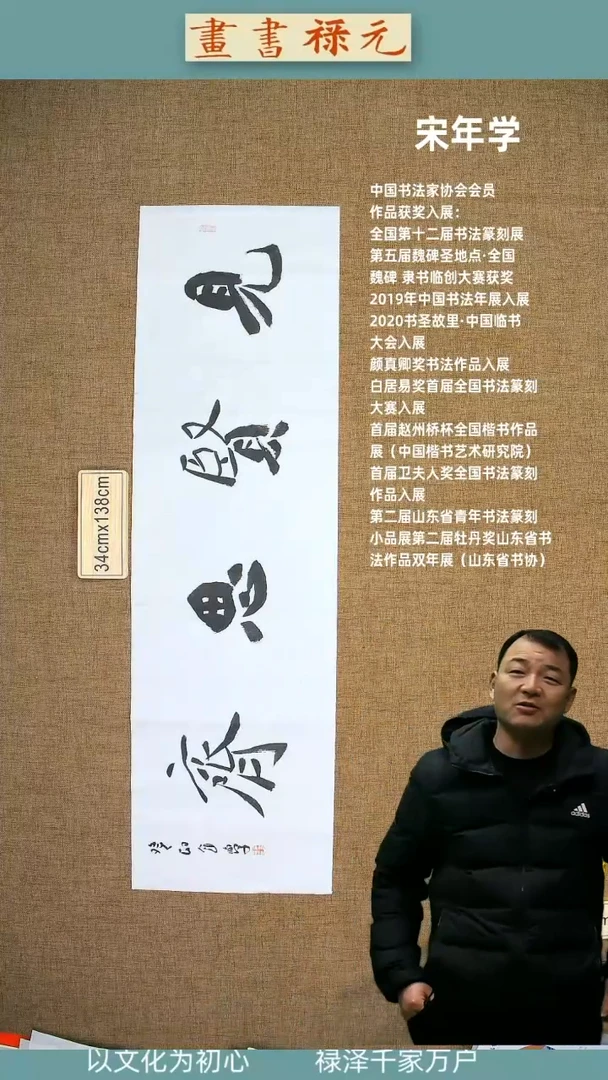 元禄書畫
宋年学
中国书法家协会会员
作品获奖入展：
全国第十二届书法篆刻展
第五届魏碑圣地点·全国
魏碑 隶书临创大赛获奖
2019年中国书法年展入展
2020书圣故里·中国临书
大会入展
颜真卿奖书法作品入展
白居易奖首届全国书法篆刻
大赛入展
首届赵州桥杯全国楷书作品
展（中国楷书艺术研究院）
首届卫夫人奖全国书法篆刻
作品入展
第二届山东省青年书法篆刻
小品展第二届牡丹奖山东省书
法作品双年展（山东省书协）
見賢思齊
34cmx138cm
adidas
以文化为初心 禄泽千家万户